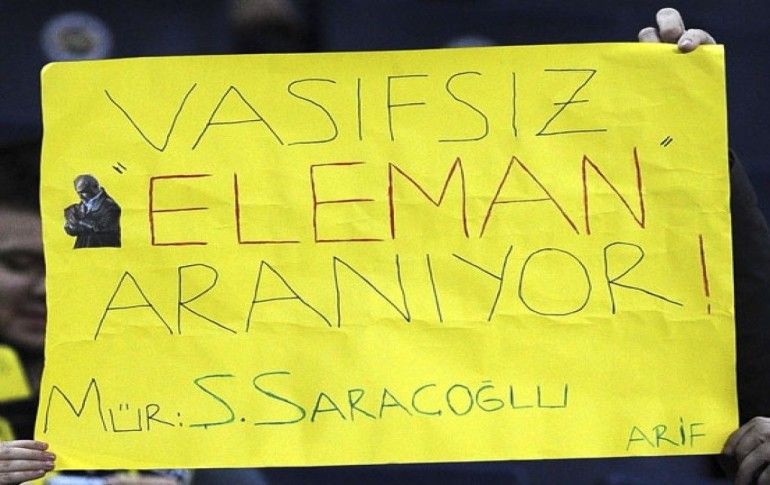 VASIFSIZ
"ELEMAN"
ARANIYOR!
MÜR: S. SARACOĞLU
ARİF